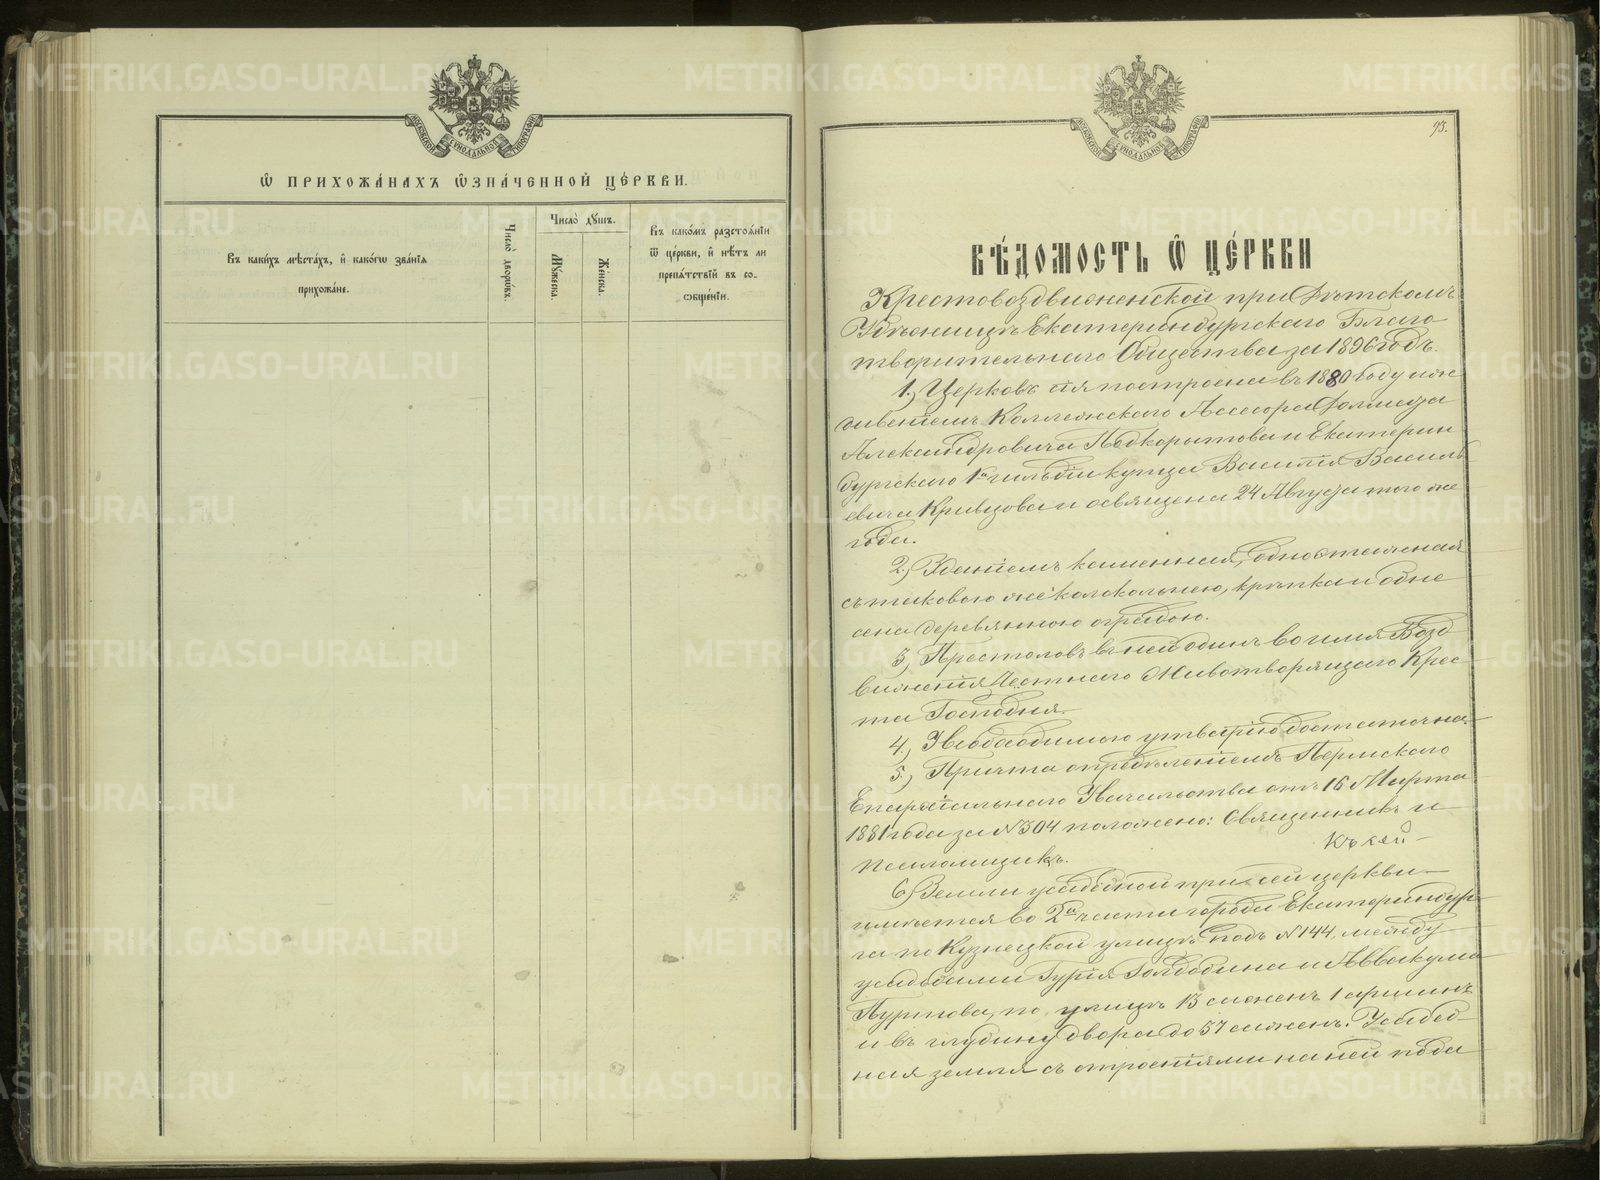 МОСКОВСКОЙ СѴНОДАЛЬНОЙ ТИПОГРАФІИ
Ѿ ПРИХОЖА́НАХЪ ѠЗНА́ЧЕННОЙ ЦЕ́РКВИ.
Въ каки́хъ мѣста́хъ, и҆ како́гѡ зва́нїѧ
прихожа́не.
Число̀ дворѡ́въ.
Число̀ дꙋ́шъ.
Мꙋ́жеска.
Же́нска.
Въ како́мъ разстоѧ́нїи
ѿ це́ркви, и҆ нѣ́тъ ли
препѧ́тствїй въ со-
ѻбще́нїи.
МОСКОВСКОЙ СѴНОДАЛЬНОЙ ТИПОГРАФІИ
93.
ВѢ́ДОМОСТЬ Ѡ҆ ЦЕ́РКВИ
Крестовоздвиженской при Дѣтскомъ
Убѣжищѣ Екатеринбургскаго Благо
творительнаго Общества за 1896 годъ.
1.) Церковь сія построена въ 1880 году иж
дивеніемъ Коллежскаго Ассесора
Александровича Подкорытова и Екатерин
бургскаго 1й гильдіи купца Василія Василь
евича Кривцова и освящена 24 Августа того же
года.
2.) Зданіемъ каменная, одноэтажная
съ таковою же колокольнею, крѣпка и обне
сена деревянною оградою.
3.) Престоловъ въ ней одинъ во имя Возд
виженія Честнаго Животворящаго Крес
та Господня.
4.) Необходимою утварію достаточна.
5.) Причта опредѣленіемъ Пермскаго
Епархіальнаго Начальства отъ 16 Марта
1881 года за № 504 положено: Священникъ и
Псаломщикъ.
къ сей
6.) Земли усадебной при сей церкви
имѣется во 2й части города Екатеринбур
га по Кузнецкой улицѣ подъ № 144, между
усадьбами Гурія Голдобина и Аввакума
по улицѣ 13 сажень 1 аршинъ
и въ глубину двора до 57 сажень. Усадеб
ная земля съ строеніями на ней пода
METRIKI.GASO-URAL.RU